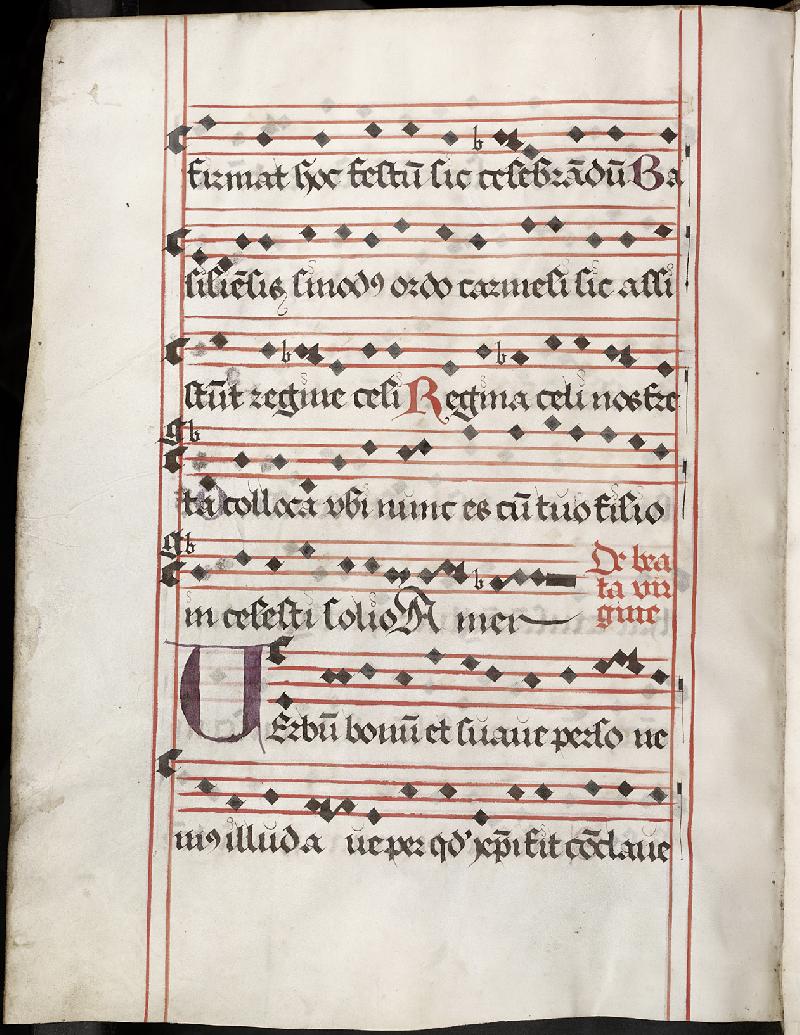 firmat hoc festū sic celebrādū Ba
siliēsis sinodꝰ ordo carmeli sic assi
stūt regine celi Regina celi nos fre
ta colloca vbi nunc es cū tuo filio
in celesti solio Amen
De bea
ta vir
gine
VErbū bonū et suaue perso ne
mꝰ illud a ue per qd' xp̄i fit cōclaue